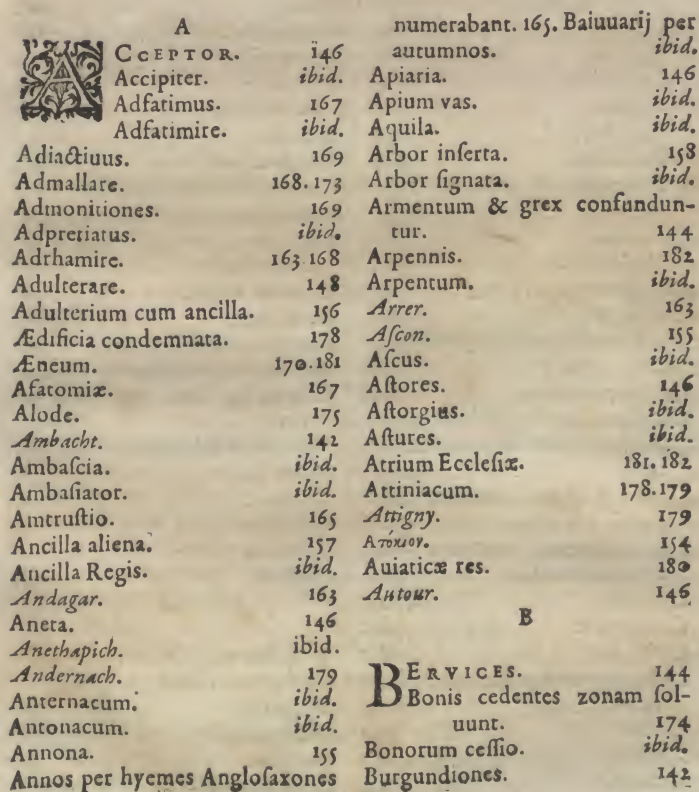 A
ACCEPTOR. 146
Accipiter. ibid.
Adfatimus. 167
Adfatimire. ibid.
Adiactiuus. 169
Admallare. 168.173
Admonitiones. 169
Adpretiatus. ibid.
Adrhamire. 163 168
Adulterare. 148
Adulterium cum ancilla. 156
Ædificia condemnata. 178
Æneum. 170.181
Afatomiæ. 167
Alode. 175
Ambacht. 142
Ambaſcia. ibid.
Ambaſiator. ibid.
Amtruſtio. 165
Ancilla aliena. 157
Ancilla Regis. ibid.
Andagar. 163
Aneta. 146
Anethapich. ibid.
Andernach. 179
Anternacum. ibid.
Antonacum. ibid.
Annona. 155
Annos per hyemes Angloſaxones
numerabant. 165. Baiuuarij per
autumnos. ibid.
Apiaria. 146
Apium vas. ibid.
Aquila. ibid.
Arbor inſerta. 158
Arbor ſignata. ibid.
Armentum & grex confundun-
tur. 144
Arpennis. 182
Arpentum. ibid.
Arrer. 163
Aſcon. 155
Aſcus. ibid.
Aſtores. 146
Aſtorgius. ibid.
Aſtures. ibid.
Atrium Eccleſiæ. 181. 182
Attiniacum. 178.179
Attigny. 179
Ατόκιον. 154
Auiaticæ res. 180
Autour. 146
B
BERVICES. 144
Bonis cedentes zonam ſol-
uunt. 174
Bonorum ceſſio. ibid.
Burgundiones. 142